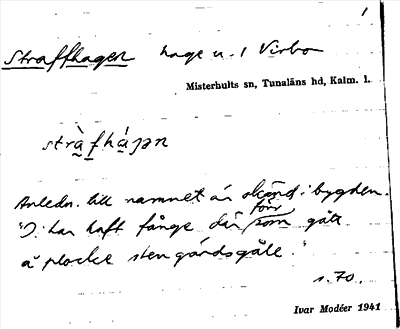 1
Straffhagen hage u. 1 Virbo
Misterhults sn, Tunaläns hd, Kalm. l.
strà̱f̱há̱gən
Anledn. till namnet är okänd i bygden.
"D. har haft fånge där förr som gått
å plocke stengärdsgåle."
s. 70.
Ivar Modéer 1941